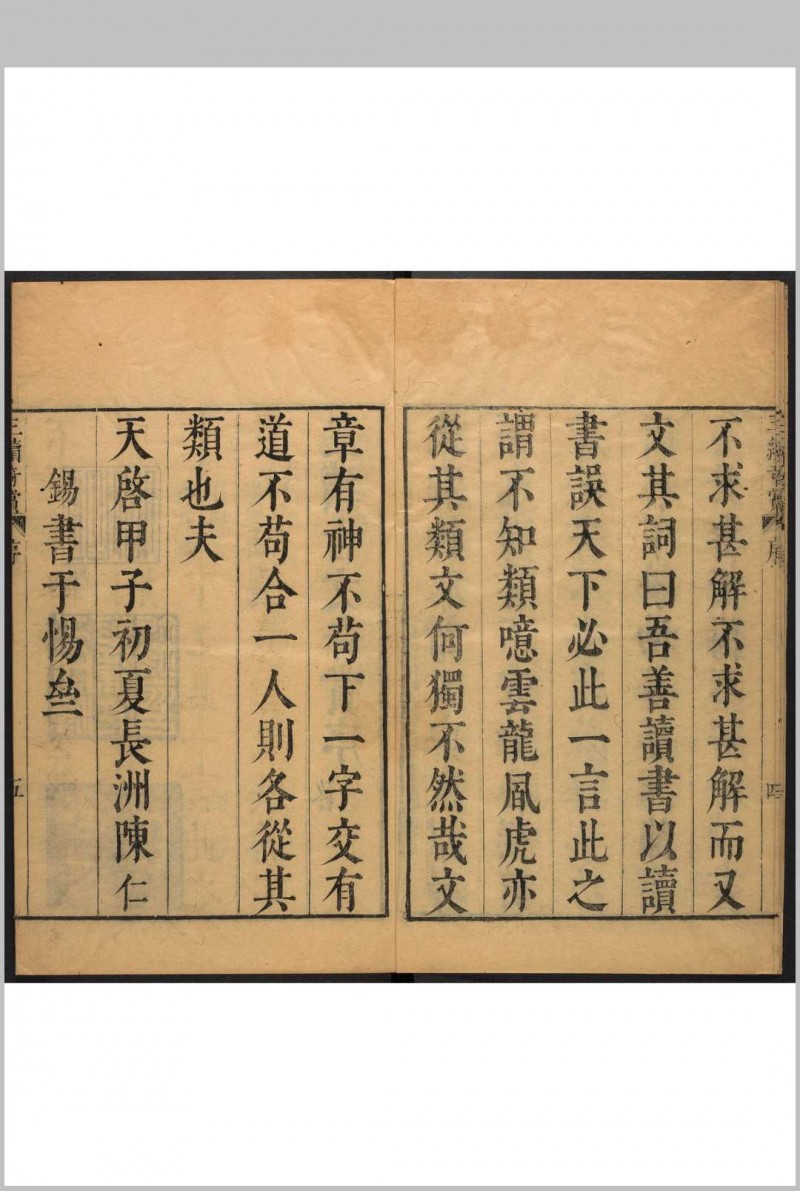 三續奇賞 序 四
不求甚解不求甚解而又
文其詞曰吾善讀書以讀
書誤天下必此一言此之
謂不知類噫雲龍風虎亦
從其類文何獨不然哉文
章有神不苟下一字交有
道不苟合一人則各從其
類也夫
天啓甲子初夏長洲陳仁
錫書于惕壘
三續奇賞 序 五